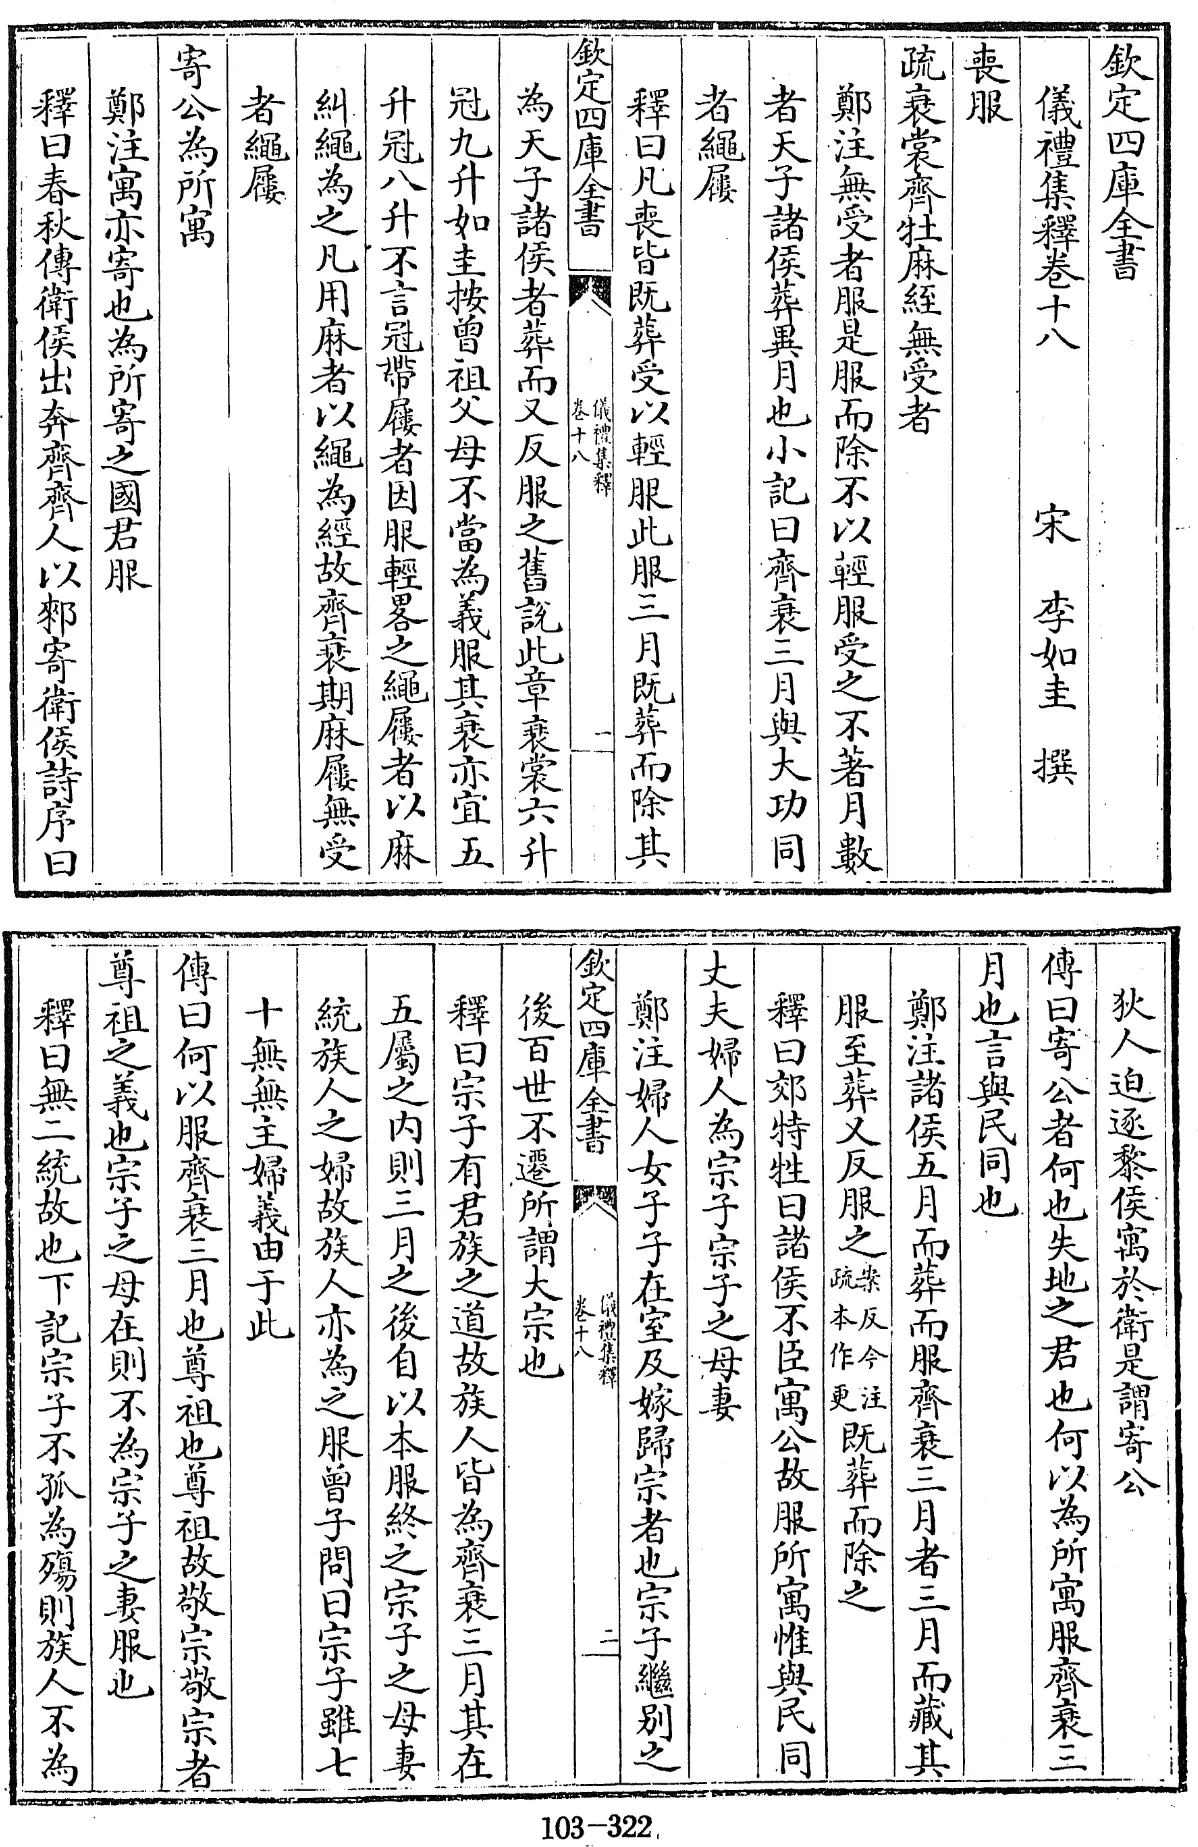 欽定四庫全書
儀禮集釋卷十八　宋　李如圭　撰
喪服
疏衰裳齊牡麻絰無受者
鄭注無受者服是服而除不以輕服受之不著月數
者天子諸侯葬異月也小記曰齊衰三月與大功同
者繩屨
釋曰凡喪皆既葬受以輕服此服三月既葬而除其
欽定四庫全書
儀禮集釋
卷十八
一
為天子諸侯者葬而又反服之舊說此章衰裳六升
冠九升如圭按曾祖父母不當為義服其衰亦宜五
升冠八升不言冠帶屨者因服輕畧之繩屨者以麻
糾繩為之凡用麻者以繩為經故齊衰期麻屨無受
者繩屨
寄公為所寓
鄭注寓亦寄也為所寄之國君服
釋曰春秋傳衛侯出奔齊齊人以郲寄衛侯詩序曰
狄人迫逐黎侯寓於衛是謂寄公
傳曰寄公者何也失地之君也何以為所寓服齊衰三
月也言與民同也
鄭注諸侯五月而葬而服齊衰三月者三月而藏其
服至葬又反服之案反今注疏本作更既葬而除之
釋曰郊特牲曰諸侯不臣寓公故服所寓惟與民同
丈夫婦人為宗子宗子之母妻
鄭注婦人女子子在室及嫁歸宗者也宗子繼别之
欽定四庫全書
儀禮集釋
卷十八
二
後百世不遷所謂大宗也
釋曰宗子有君族之道故族人皆為齊衰三月其在
五屬之内則三月之後自以本服終之宗子之母妻
統族人之婦故族人亦為之服曾子問曰宗子雖七
十無無主婦義由于此
傳曰何以服齊衰三月也尊祖也尊祖故敬宗敬宗者
尊祖之義也宗子之母在則不為宗子之妻服也
釋曰無二統故也下記宗子不孤為殤則族人不為
103-322